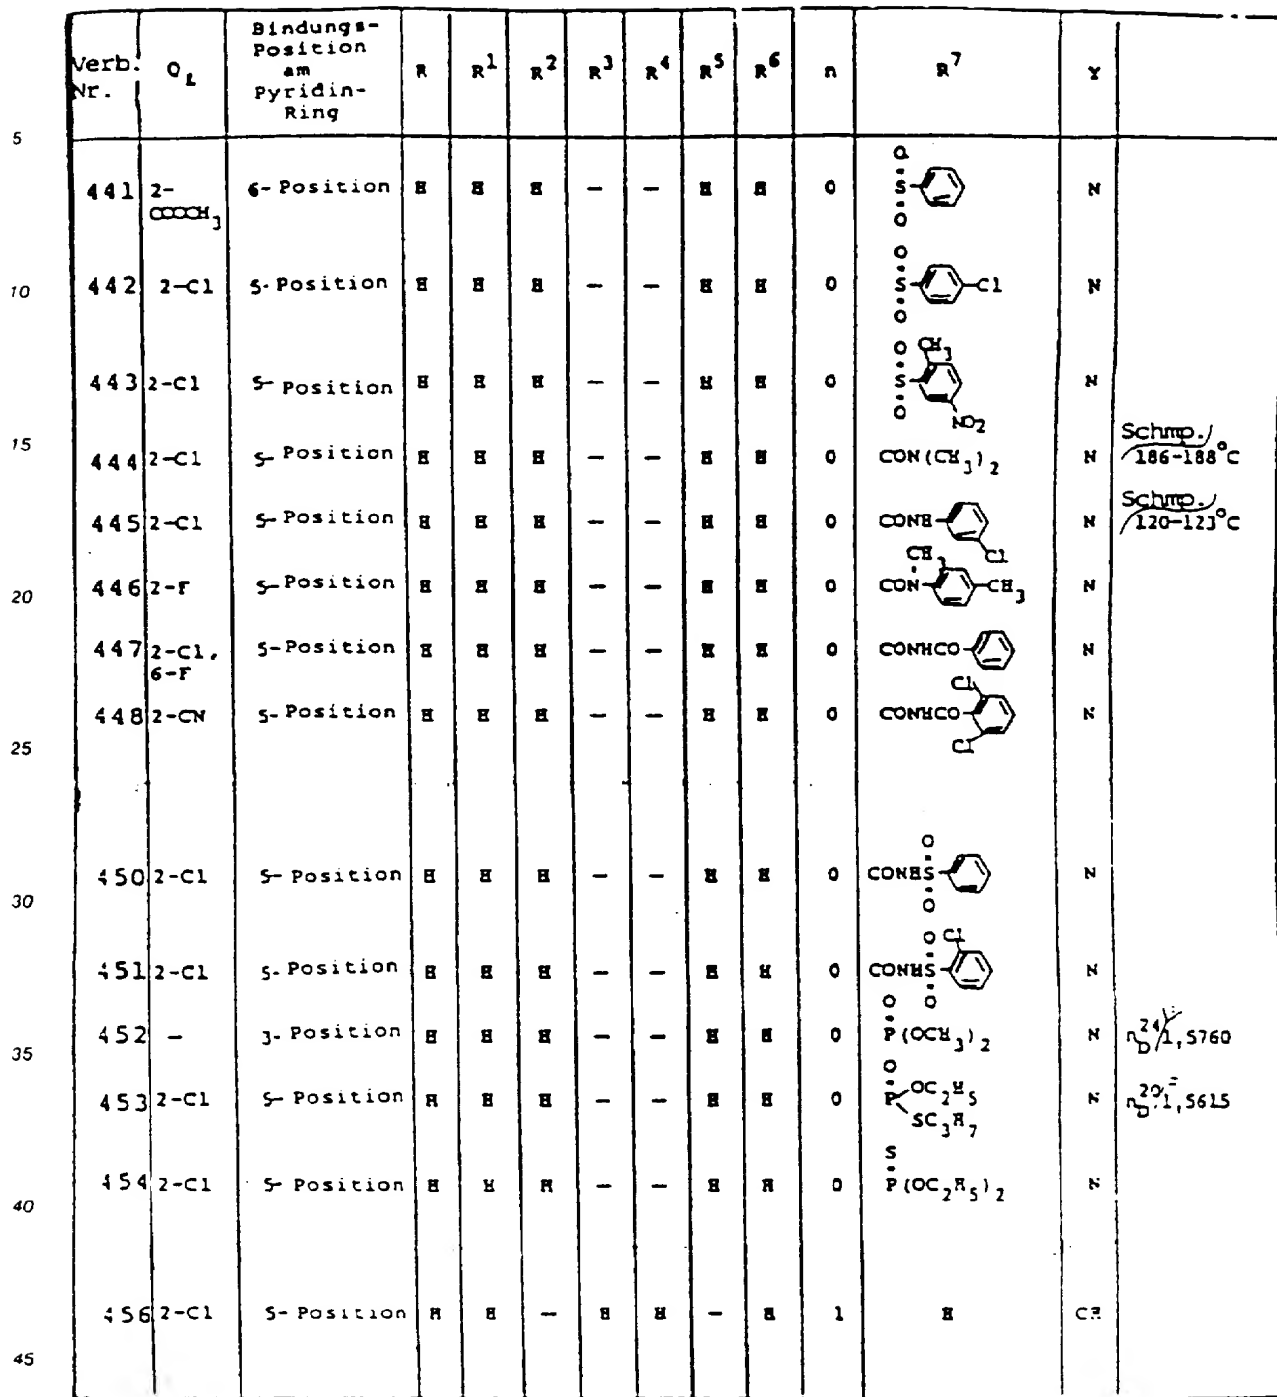 Verb. Nr. | Q_L | Bindungs-Position am Pyridin-Ring | R | R^1 | R^2 | R^3 | R^4 | R^5 | R^6 | n | R^7 | Y
5
441 | 2-COOCH3 | 6-Position | H | H | H | — | — | H | H | 0 | O S O | N
10
442 | 2-Cl | 5-Position | H | H | H | — | — | H | H | 0 | O S O Cl | N
443 | 2-Cl | 5-Position | H | H | H | — | — | H | H | 0 | O S O CH3 NO2 | N
15
444 | 2-Cl | 5-Position | H | H | H | — | — | H | H | 0 | CON(CH3)2 | N | Schmp. 186-188°C
445 | 2-Cl | 5-Position | H | H | H | — | — | H | H | 0 | CONH Cl | N | Schmp. 120-123°C
20
446 | 2-F | 5-Position | H | H | H | — | — | H | H | 0 | CON CH3 CH3 | N
447 | 2-Cl, 6-F | 5-Position | H | H | H | — | — | H | H | 0 | CONHCO | N
448 | 2-CN | 5-Position | H | H | H | — | — | H | H | 0 | CONHCO Cl Cl | N
25
450 | 2-Cl | 5-Position | H | H | H | — | — | H | H | 0 | CONHS O O | N
30
451 | 2-Cl | 5-Position | H | H | H | — | — | H | H | 0 | CONHS O O Cl | N
35
452 | — | 3-Position | H | H | H | — | — | H | H | 0 | O P(OCH3)2 | N | n_D^24 1,5760
453 | 2-Cl | 5-Position | H | H | H | — | — | H | H | 0 | O P OC2H5 SC3H7 | N | n_D^20 1,5615
40
454 | 2-Cl | 5-Position | H | H | H | — | — | H | H | 0 | S P(OC2H5)2 | N
456 | 2-Cl | 5-Position | H | H | — | H | H | — | H | 1 | H | CH
45